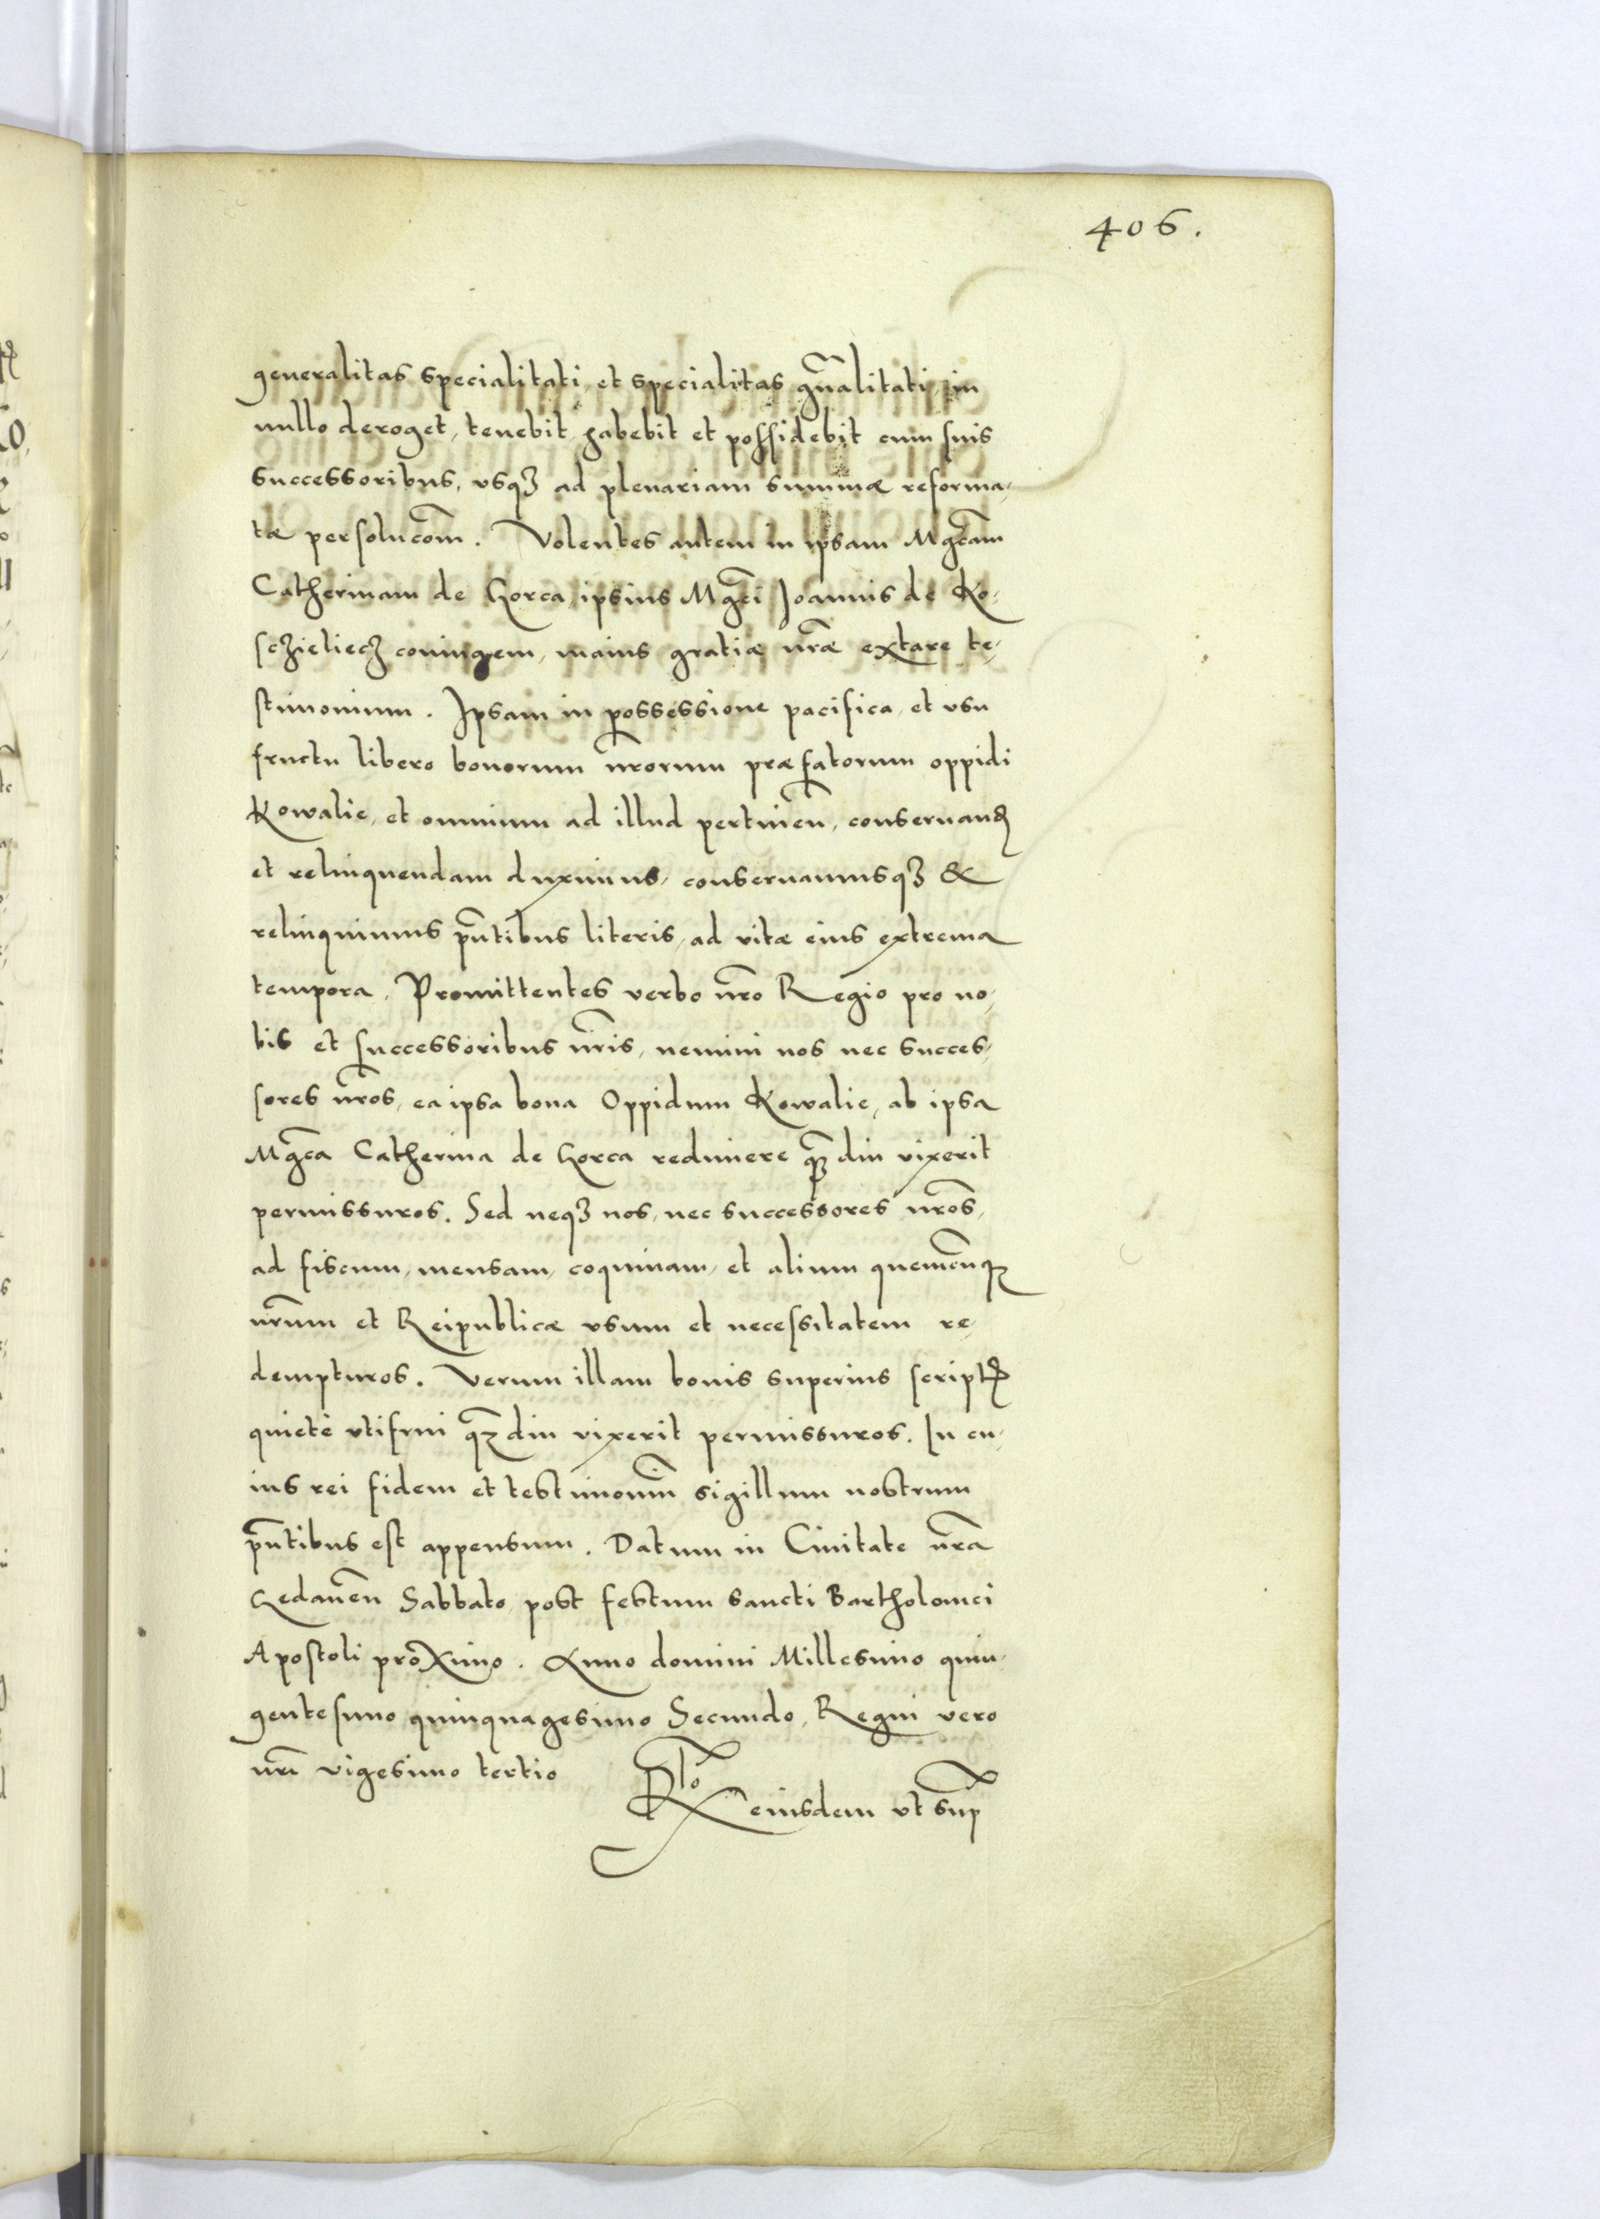 406.
generalitas specialitati, et specialitas gñalitati, in
nullo deroget, tenebit habebit et possidebit cum suis
successoribus, vsqꝫ ad plenariam summæ reforma-
tæ persolucõm. Volentes autem in ipsam Mgcãm
Catherinam de Gorca, ipsius Mgcĩ Joannis de Ko-
sczieliecz coniugem, maius gratiæ nr̃æ extare te-
stimonium. Ipsam in possessione pacifica, et vsu
fructu libero bonorum nr̃orum præfatorum oppidi
Kowalie, et omnium ad illud pertineñ, conseruandꝫ
et relinquendam duximus, conseruamusqꝫ &
relinquimus pñtibus literis, ad vitæ eius extrema
tempora. Promittentes verbo nr̃o Regio pro no-
bis et successoribus nr̃is, nemini nos nec succes-
sores nr̃os, ea ipsa bona Oppidum Kowalie, ab ipsa
Mgcã Catherina de Gorca redimere qꝫ̃ diu vixerit
permissuros. Sed neqꝫ nos, nec successores nr̃os,
ad fiscum, mensam, coquinam, et alium quemcũqꝫ
nr̃um et Reipublicæ vsum et necessitatem re-
dempturos. Verum illam bonis superius scriptꝭ
quietè vtifrui qꝫ̃ diu vixerit permissuros. In cu-
ius rei fidem et testimoniũ sigillum nostrum
pñtibus est appensum. Datum in Ciuitate nr̃a
Gedaneñ Sabbato post festum sancti Bartholomei
Apostoli proximo. Anno domini Millesimo quin-
gentesimo quinquagesimo Secundo, Regni vero
nr̃i vigesimo tertio
Rto eiusdem vt sup̃